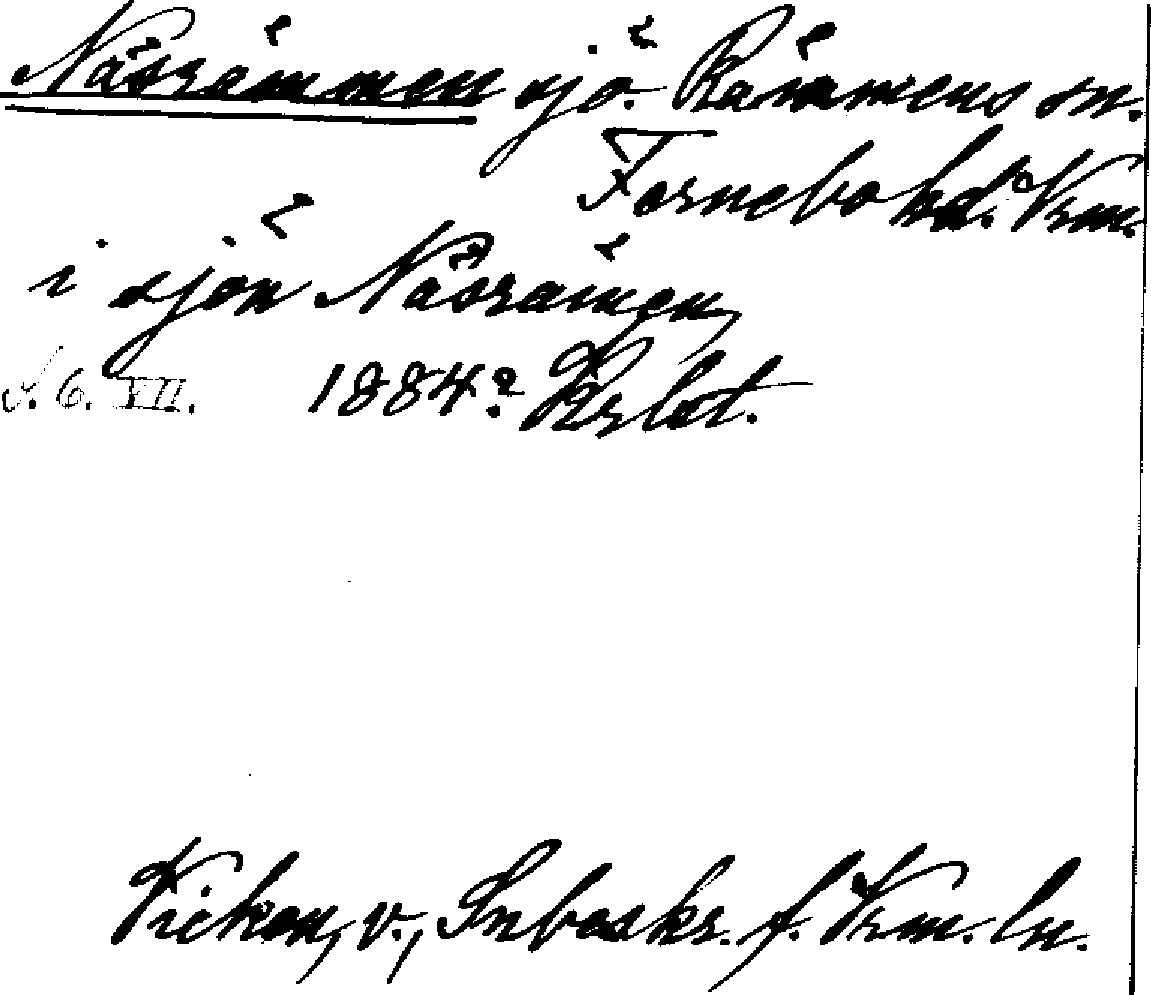 Näsrämmen sjö. Rämmens sn.
Fernebo hd. Vrm.
i sjön Näsrämen,
S. 6. VII. 1884? Krlot.
Vicken, v., Snbeskr. f. Vrm. ln.